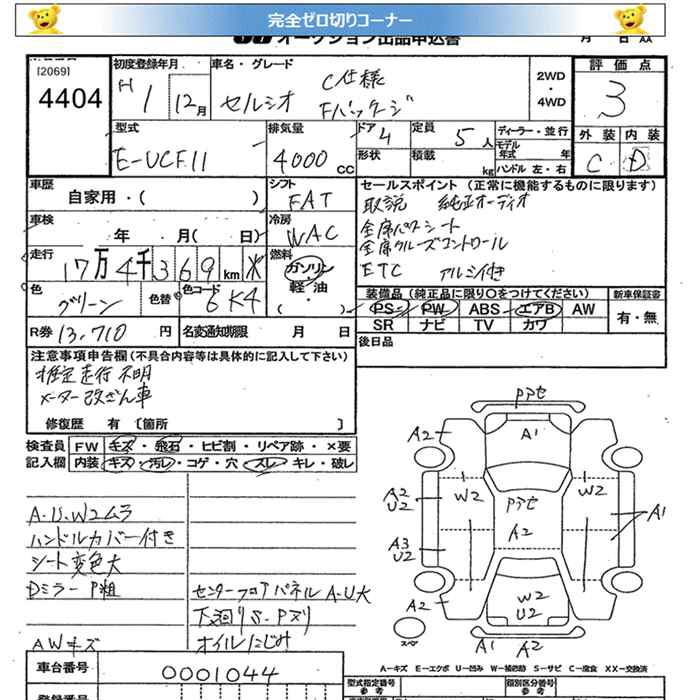 完全ゼロ切りコーナー
オークション出品申込書
月 日
[2069]
4404
初度登録年月
H 1 12月
車名・グレード
セルシオ
C仕様
Fパッケージ
2WD
・
4WD
評価点
3
外装 内装
C D
型式
E-UCF11
排気量
4000 CC
ドア 4
形状
定員 5 人
積載 kg
ディーラー・並行
モデル年式 年
ハンドル 左・右
車歴
自家用・( )
シフト
FAT
車検
年 月( 日)
冷房
WAC
走行
17万4千369km
燃料
ガソリン
軽・油
( )
色
グリーン
色替
色コード
6K4
R券 13,710 円
名変通知期限 月 日
セールスポイント (正常に機能するものに限ります)
取説 純正オーディオ
全席パワーシート
全席クルーズコントロール
ETC アルミ付き
装備品 (純正品に限り○をつけてください)
PS PW ABS エアB AW
SR ナビ TV カワ
新車保証書
有・無
後日品
注意事項申告欄 (不具合内容等は具体的に記入して下さい)
推定走行不明
メーター改ざん車
修復歴 有 〔箇所 〕
検査員
記入欄
FW キズ・飛石・ヒビ割・リペア跡・×要
内装 キズ・汚レ・コゲ・穴 スレ キレ・破レ
A.U.W2ムラ
ハンドルカバー付き
シート変色大
Dミラー P粗
AWキズ
センターフロアパネル A-U大
下廻りS.Pヌリ
オイルにじみ
Pアセ
A2
A1
W2
Pアセ
W2
A2
U2
A2
A1
A3
U2
A2
W2
U2
A1 A2
スペア
A=キズ E=エクボ U=凹み W=補修跡 S=サビ C=腐食 XX=交換済
車台番号
0001044
型式指定番号
参考
類別区分番号
参考
登録番号